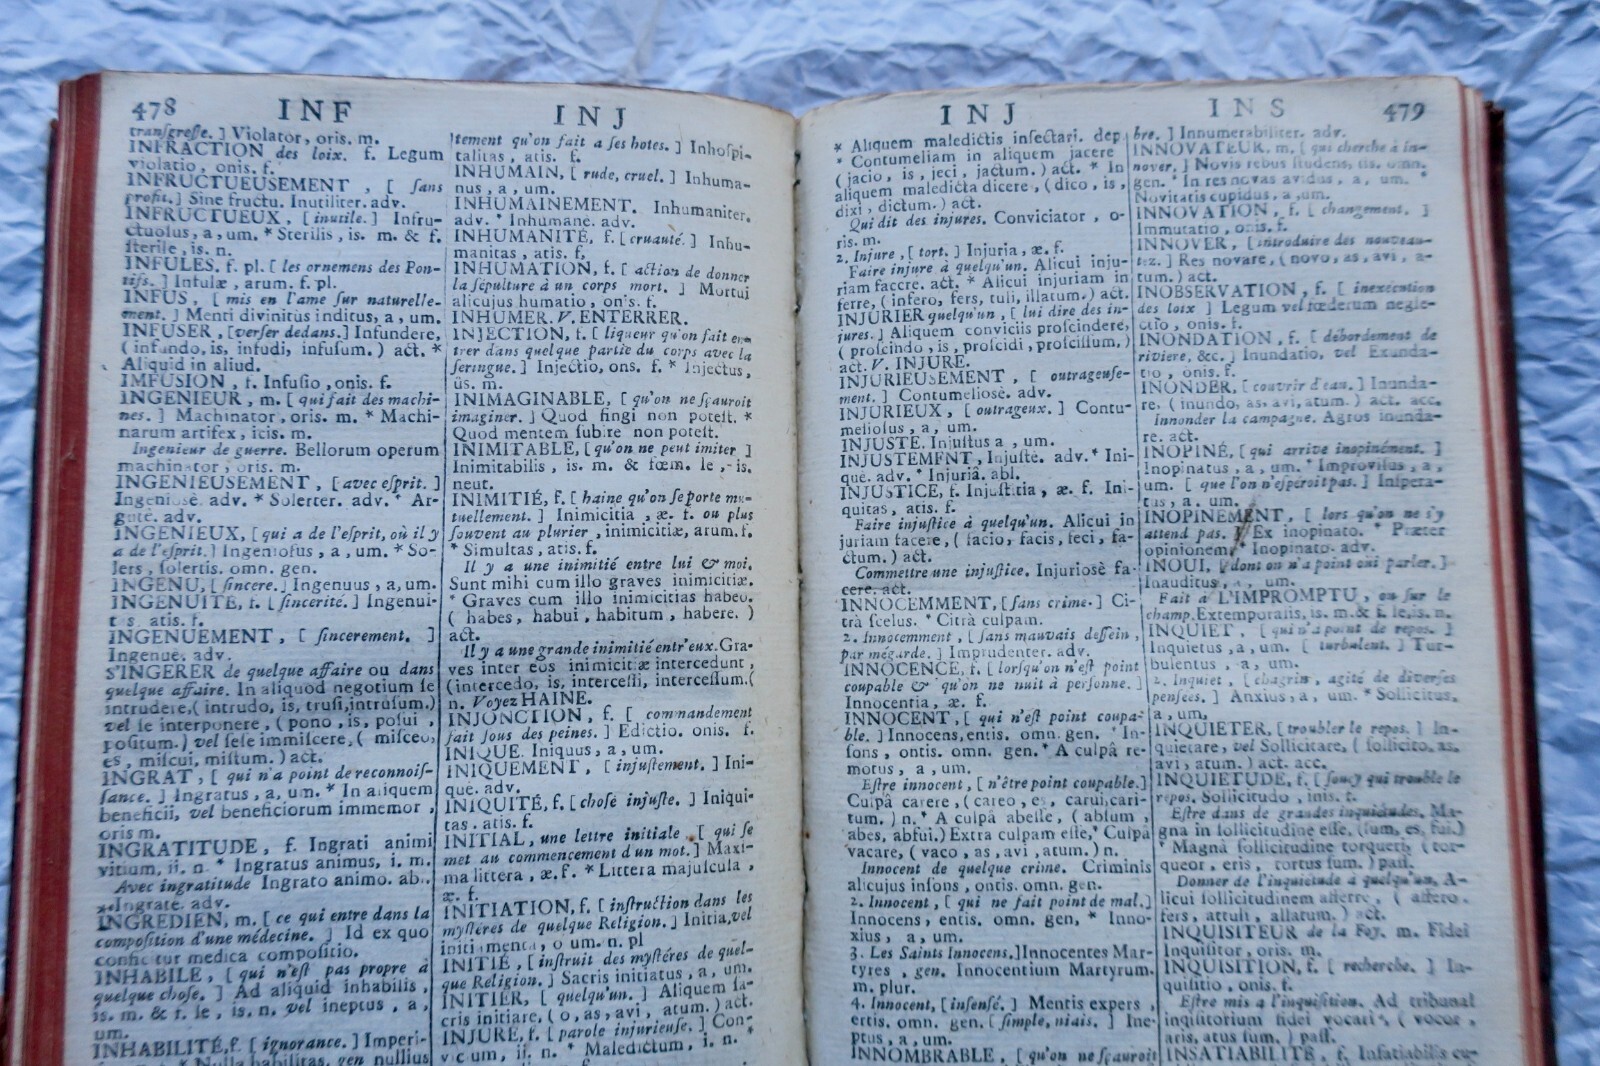 478 INF INJ
transgresse. ] Violator, oris. m.
INFRACTION des loix. f. Legum
violatio, onis. f.
INFRUCTUEUSEMENT , [ sans
profit. ] Sine fructu. Inutiliter. adv.
INFRUCTUEUX, [ inutile. ] Infru-
ctuosus, a, um. * Sterilis, is. m. & f.
sterile, is. n.
INFULES. f. pl. [ les ornemens des Pon-
tifs. ] Infulæ, arum. f. pl.
INFUS, [ mis en l'ame sur naturelle-
ment. ] Menti divinitùs inditus, a, um.
INFUSER, [verser dedans.] Infundere,
( infundo, is, infudi, infusum. ) act. *
Aliquid in aliud.
IMFUSION, f. Infusio, onis. f.
INGENIEUR, m. [ qui fait des machi-
nes. ] Machinator, oris. m. * Machi-
narum artifex, icis. m.
Ingenieur de guerre. Bellorum operum
machinator, oris. m.
INGENIEUSEMENT, [avec esprit. ]
Ingeniosè. adv. * Solerter. adv. * Ar-
gutè. adv.
INGENIEUX, [ qui a de l'esprit, où il y
a de l'esprit. ] Ingeniosus, a, um. * So-
lers, solertis. omn. gen.
INGENU, [ sincere. ] Ingenuus, a, um.
INGENUITÉ, f. [ sincerité. ] Ingenui-
tas. atis. f.
INGENUEMENT , [ sincerement. ]
Ingenuè. adv.
S'INGERER de quelque affaire ou dans
quelque affaire. In aliquod negotium se
intrudere, (intrudo, is, trusi, intrusum.)
vel se interponere, ( pono, is, posui,
positum. ) vel sese immiscere, ( misceo,
es, miscui, mistum. ) act.
INGRAT, [ qui n'a point de reconnois-
sance. ] Ingratus, a, um. * In aliquem
beneficii, vel beneficiorum immemor,
oris m.
INGRATITUDE, f. Ingrati animi
vitium, ii. n. * Ingratus animus, i. m.
Avec ingratitude Ingrato animo. ab.
* Ingratè. adv.
INGREDIEN, m. [ ce qui entre dans la
composition d'une médecine. ] Id ex quo
conficitur medica compositio.
INHABILE, [ qui n'est pas propre à
quelque chose. ] Ad aliquid inhabilis,
is. m. & f. le, is. n. vel ineptus, a,
um.
INHABILITÉ, f. [ ignorance. ] Imperi-
* Nulla habilitas, gen nullius
tement qu'on fait a ses hotes. ] Inhospi-
talitas, atis. f.
INHUMAIN, [ rude, cruel. ] Inhuma-
nus, a, um.
INHUMAINEMENT. Inhumaniter.
adv. * Inhumanè. adv.
INHUMANITÉ, f. [ cruauté. ] Inhu-
manitas, atis. f.
INHUMATION, f. [ action de donner
la sépulture à un corps mort. ] Mortui
alicujus humatio, onis. f.
INHUMER. V. ENTERRER.
INJECTION, f. [ liqueur qu'on fait en-
trer dans quelque partie du corps avec la
seringue. ] Injectio, ons. f. * Injectus,
ûs. m.
INIMAGINABLE, [ qu'on ne sçauroit
imaginer. ] Quod fingi non potest. *
Quod mentem subire non potest.
INIMITABLE, [ qu'on ne peut imiter ]
Inimitabilis, is. m. & fœm. le, is.
neut.
INIMITIÉ, f. [ haine qu'on se porte mu-
tuellement. ] Inimicitia, æ. f. ou plus
souvent au plurier, inimicitiæ, arum. f.
* Simultas, atis. f.
Il y a une inimitié entre lui & moi.
Sunt mihi cum illo graves inimicitiæ.
* Graves cum illo inimicitias habeo.
( habes, habui, habitum, habere. )
act.
Il y a une grande inimitié entr'eux. Gra-
ves inter eos inimicitiæ intercedunt,
(intercedo, is, intercessi, intercessum.(
n. Voyez HAINE.
INJONCTION, f. [ commandement
fait sous des peines. ] Edictio. onis. f.
INIQUE. Iniquus, a, um.
INIQUEMENT, [ injustement. ] Ini-
què. adv.
INIQUITÉ, f. [ chose injuste. ] Iniqui-
tas. atis. f.
INITIAL, une lettre initiale, [ qui se
met au commencement d'un mot. ] Maxi-
ma littera, æ. f. * Littera majuscula,
æ. f.
INITIATION, f. [ instruction dans les
mystéres de quelque Religion. ] Initia, vel
initiamenta, o um. n. pl
INITIÉ, [ instruit des mystéres de quel-
que Religion. ] Sacris initiatus, a, um.
INITIER, [ quelqu'un. ] Aliquem sa-
cris initiare. ( o, as, avi, atum. ) act.
INJURE, f. [ parole injurieuse. ] Con-
vicium, ii. n. * Maledictum, i. n.
INJ INS 479
* Aliquem maledictis insectari. dep
* Contumeliam in aliquem jacere
( jacio, is, jeci, jactum. ) act. * In
aliquem maledicta dicere, ( dico, is,
dixi, dictum. ) act.
Qui dit des injures. Conviciator, o-
ris. m.
2. Injure, [ tort. ] Injuria, æ. f.
Faire injure à quelqu'un. Alicui inju-
riam facere. act. * Alicui injuriam in
ferre, ( infero, fers, tuli, illatum. ) act.
INJURIER quelqu'un, [ lui dire des in-
jures. ] Aliquem conviciis proscindere,
( proscindo, is, proscidi, proscissum. )
act. V. INJURE.
INJURIEUSEMENT , [ outrageuse-
ment. ] Contumeliosè. adv.
INJURIEUX, [ outrageux. ] Contu-
meliosus, a, um.
INJUSTE. Injustus a, um.
INJUSTEMENT, Injustè. adv. * Ini-
què. adv. * Injuriâ. abl.
INJUSTICE, f. Injustitia, æ. f. Ini-
quitas, atis. f.
Faire injustice à quelqu'un. Alicui in
juriam facere, ( facio, facis, feci, fa-
ctum. ) act.
Commettre une injustice. Injuriosè fa-
cere. act.
INNOCEMMENT, [ sans crime. ] Ci-
trà scelus. * Citrà culpam.
2. Innocemment, [ sans mauvais dessein,
par mégarde. ] Imprudenter. adv.
INNOCENCE, f. [ lorsqu'on n'est point
coupable & qu'on ne nuit à personne. ]
Innocentia, æ. f.
INNOCENT, [ qui n'est point coupa-
ble. ] Innocens, entis. omn. gen. * In-
sons, ontis. omn. gen. * A culpâ re-
motus, a, um.
Estre innocent, [ n'être point coupable.]
Culpâ carere, ( careo, es, carui, cari-
tum. ) n. * A culpâ abesse, ( absum,
abes, abfui.) Extra culpam esse, * Culpâ
vacare, ( vaco, as, avi, atum. ) n.
Innocent de quelque crime. Criminis
alicujus insons, ontis. omn. gen.
2. Innocent, [ qui ne fait point de mal.]
Innocens, entis. omn. gen. * Inno-
xius, a, um.
3. Les Saints Innocens. ] Innocentes Mar-
tyres, gen. Innocentium Martyrum.
m. plur.
4. Innocent, [insensé. ] Mentis expers,
ertis. omn. gen. [ simple, niais. ] Ine-
ptus, a, um.
INNOMBRABLE, [ qu'on ne sçauroit
bre. ] Innumerabiliter. adv.
INNOVATEUR, m, [ qui cherche à in-
nover. ] Novis rebus studens, tis. omn.
gen. * In res novas avidus, a, um. *
Novitatis cupidus, a, um.
INNOVATION, f. [ changement. ]
Immutatio, onis. f.
INNOVER, [ introduire des nouveau-
tez. ] Res novare, ( novo, as, avi, a-
tum. ) act.
INOBSERVATION, f. [ inexécution
des loix ] Legum vel fœderum negle-
ctio, onis. f.
INONDATION, f. [ débordement de
riviere, &c. ] Inundatio, vel Exunda-
tio, onis. f.
INONDER, [ couvrir d'eau. ] Inunda-
re, ( inundo, as, avi, atum. ) act. acc.
Innonder la campagne. Agros inunda-
re. act.
INOPINÉ, [ qui arrive inopinément. ]
Inopinatus, a, um. * Improvisus, a,
um. [ que l'on n'espéroit pas. ] Inspera-
tus, a, um.
INOPINEMENT, [ lors qu'on ne s'y
attend pas. ] Ex inopinato. * Præter
opinionem, * Inopinatò. adv.
INOUI, [ dont on n'a point oui parler. ]
Inauditus, a, um.
Fait à L'IMPROMPTU, ou sur le
champ. Extemporalis, is. m. & f. le, is. n.
INQUIET, [ qui n'a point de repos. ]
Inquietus, a, um. [ turbulent. ] Tur-
bulentus, a, um.
2. Inquiet, [ chagrin, agité de diverses
pensées. ] Anxius, a, um. * Sollicitus,
a, um.
INQUIETER, [ troubler le repos. ] In-
quietare, vel Sollicitare, ( sollicito, as,
avi, atum. ) act. acc.
INQUIETUDE, f. [ soucy qui trouble le
repos. Sollicitudo, inis. f.
Estre dans de grandes inquiétudes. Ma-
gna in sollicitudine esse, (sum, es, fui.)
* Magnâ sollicitudine torqueri, ( tor-
queor, eris, tortus sum. ) pass.
Donner de l'inquiétude à quelqu'un, A-
licui sollicitudinem afferre, ( affero,
fers, attuli, allatum. ) act.
INQUISITEUR de la Foy. m. Fidei
Inquisitor, oris. m.
INQUISITION, f. [ recherche. ] In-
quisitio, onis. f.
Estre mis a l'inquisition. Ad tribunal
inquisitorium fidei vocari, ( vocor,
aris, atus sum. ) pass.
INSATIABILITÉ, f. Insatiabilis cu-